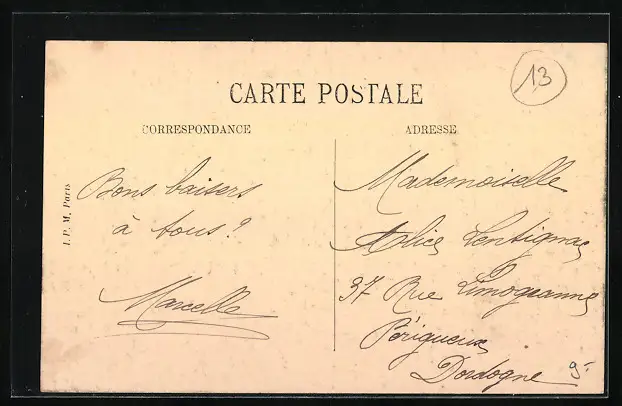 13
CARTE POSTALE
CORRESPONDANCE
ADRESSE
I. P. M. Paris
Bons baisers
à tous ?
Marcelle
Mademoiselle
Alice Lentignac
37 Rue Limogeanne
Périgueux
Dordogne